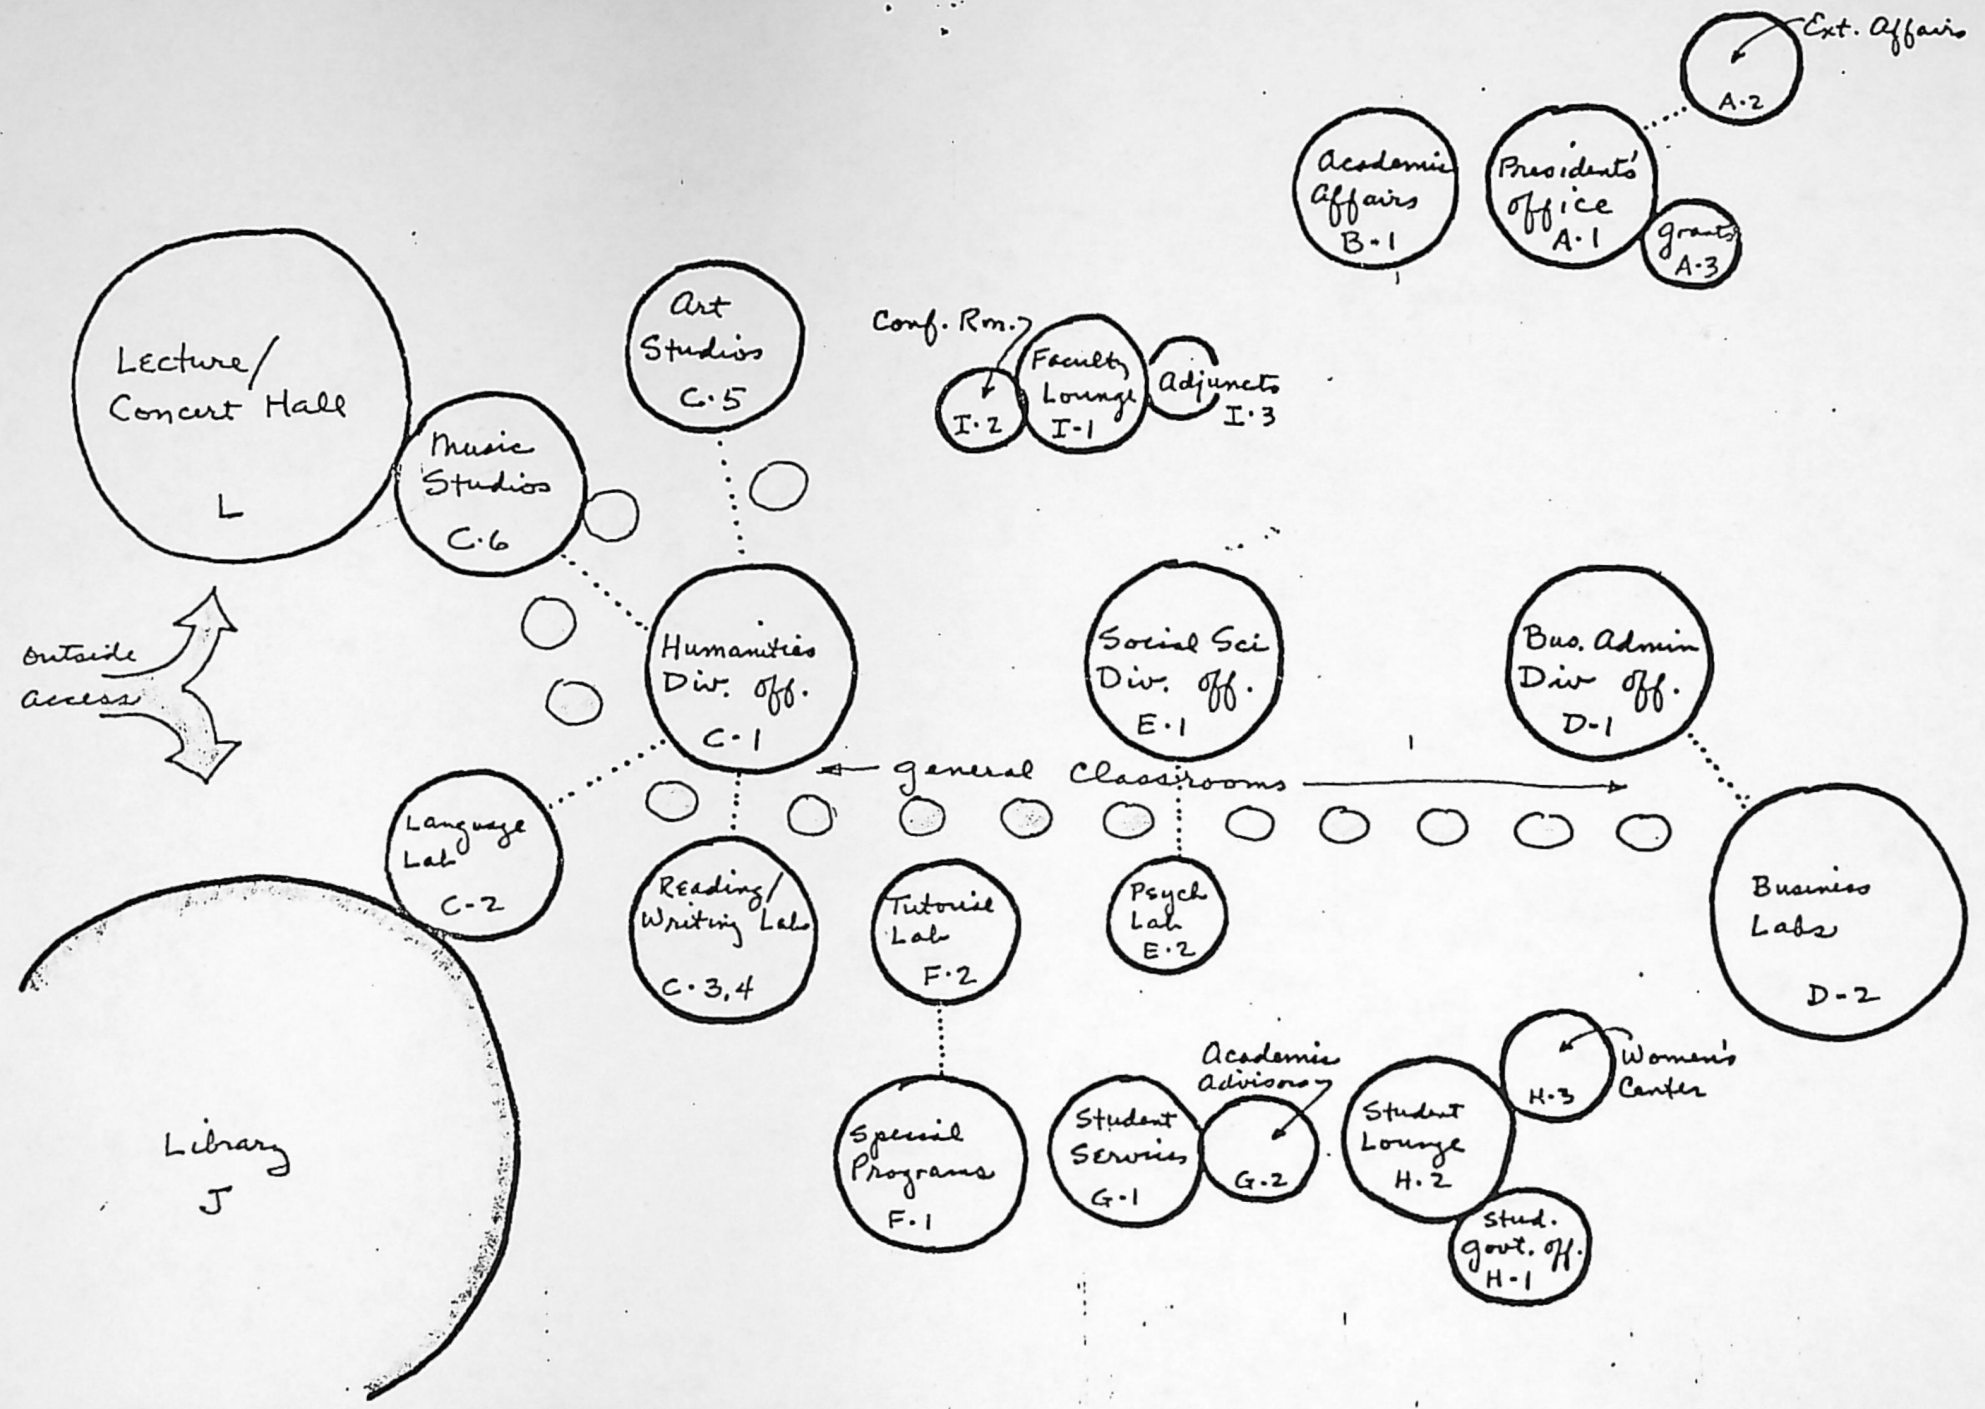 Ext. Affairs
A·2
Academic
Affairs
B·1
Presidents'
office
A·1
grants
A·3
Lecture/
Concert Hall
L
Music
Studios
C·6
Art
Studios
C·5
Conf. Rm.
I·2
Faculty
Lounge
I-1
Adjuncts
I·3
outside
access
Humanities
Div. off.
C·1
Social Sci
Div. off.
E·1
Bus. Admin
Div off.
D-1
general Classrooms
Language
Lab
C-2
Reading/
Writing Labs
C·3,4
Tutorial
Lab
F·2
Psych
Lab
E·2
Business
Labs
D-2
Library
J
Special
Programs
F·1
Student
Services
G·1
Academic
Advisory
G·2
Student
Lounge
H·2
Women's
Center
H·3
Stud.
govt. off.
H-1